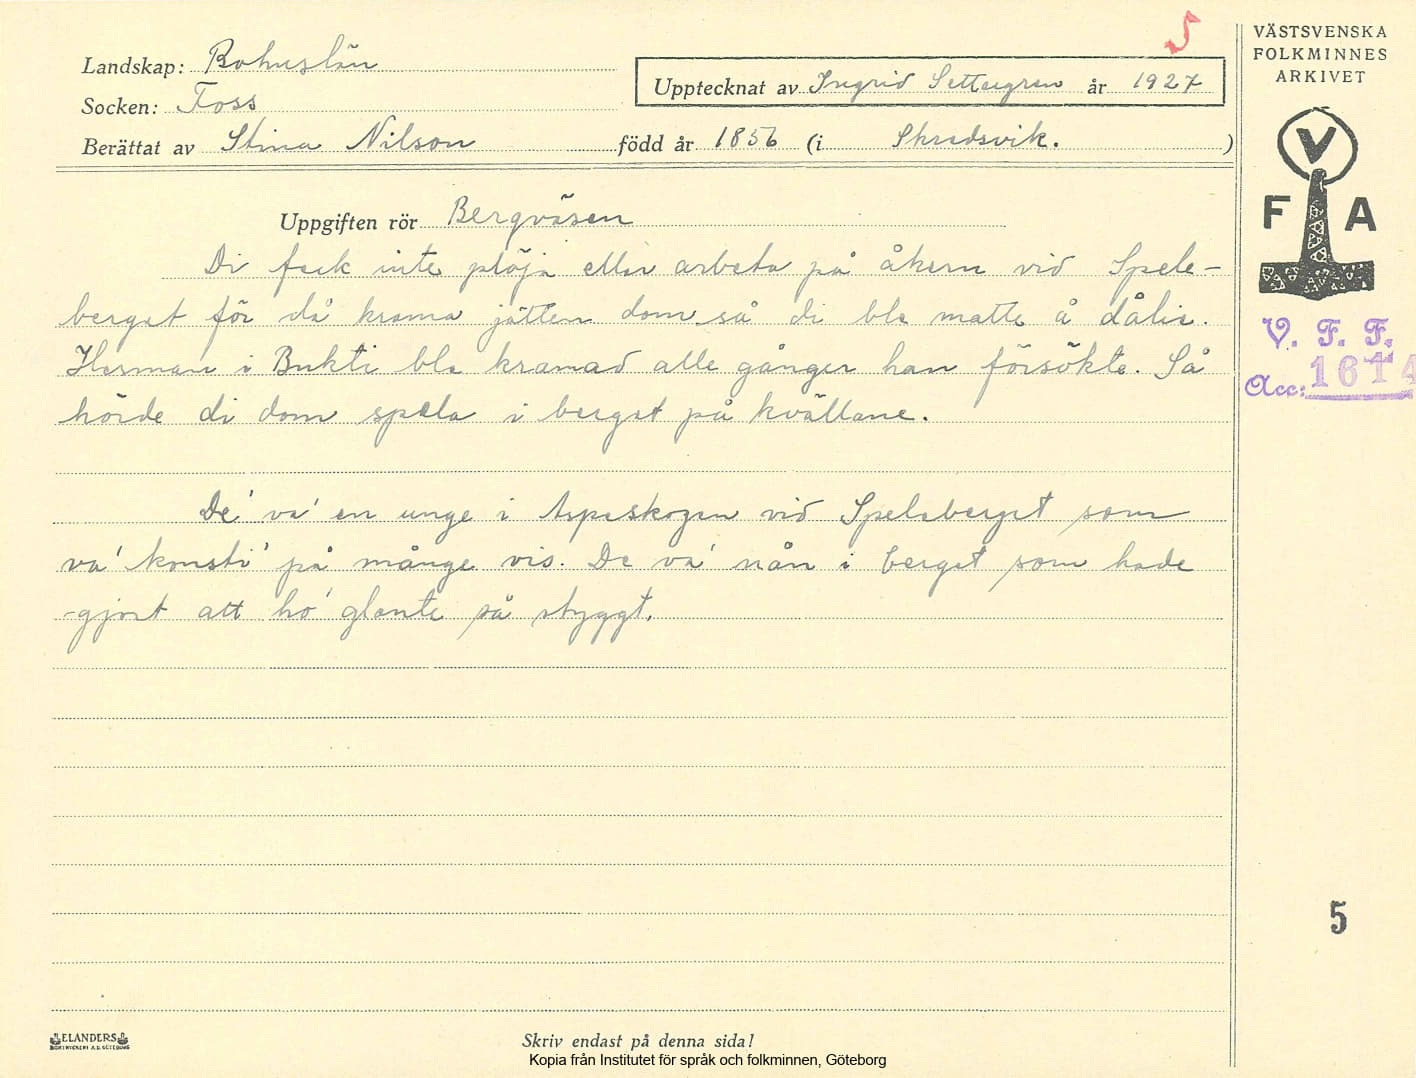 Landskap: Bohuslän
Socken: Foss
Berättat av Stina Nilson född år 1856 (i Skredsvik. )
Upptecknat av Ingrid Settergren år 1927
S
VÄSTSVENSKA
FOLKMINNES
ARKIVET
V
F A
V. F. F.
Acc: 1614
Uppgiften rör Bergväsen
Di feck inte plöja eller arbeta på åkern vid Spele-
berget för då krama jätten dom så di ble matte å dålia.
Herman i Bukti ble kramad alle gånger han försökte. Så
hörde di dom spela i berget på kvällane.
De' va' en unge i Aspeskogen vid Speleberget som
va' 'konsti' på månge vis. De va' nån i berget som hade
gjort att ho' glante så styggt.
5
ELANDERS
BOKTRYCKERI A.B. GÖTEBORG
Skriv endast på denna sida!
Kopia från Institutet för språk och folkminnen, Göteborg